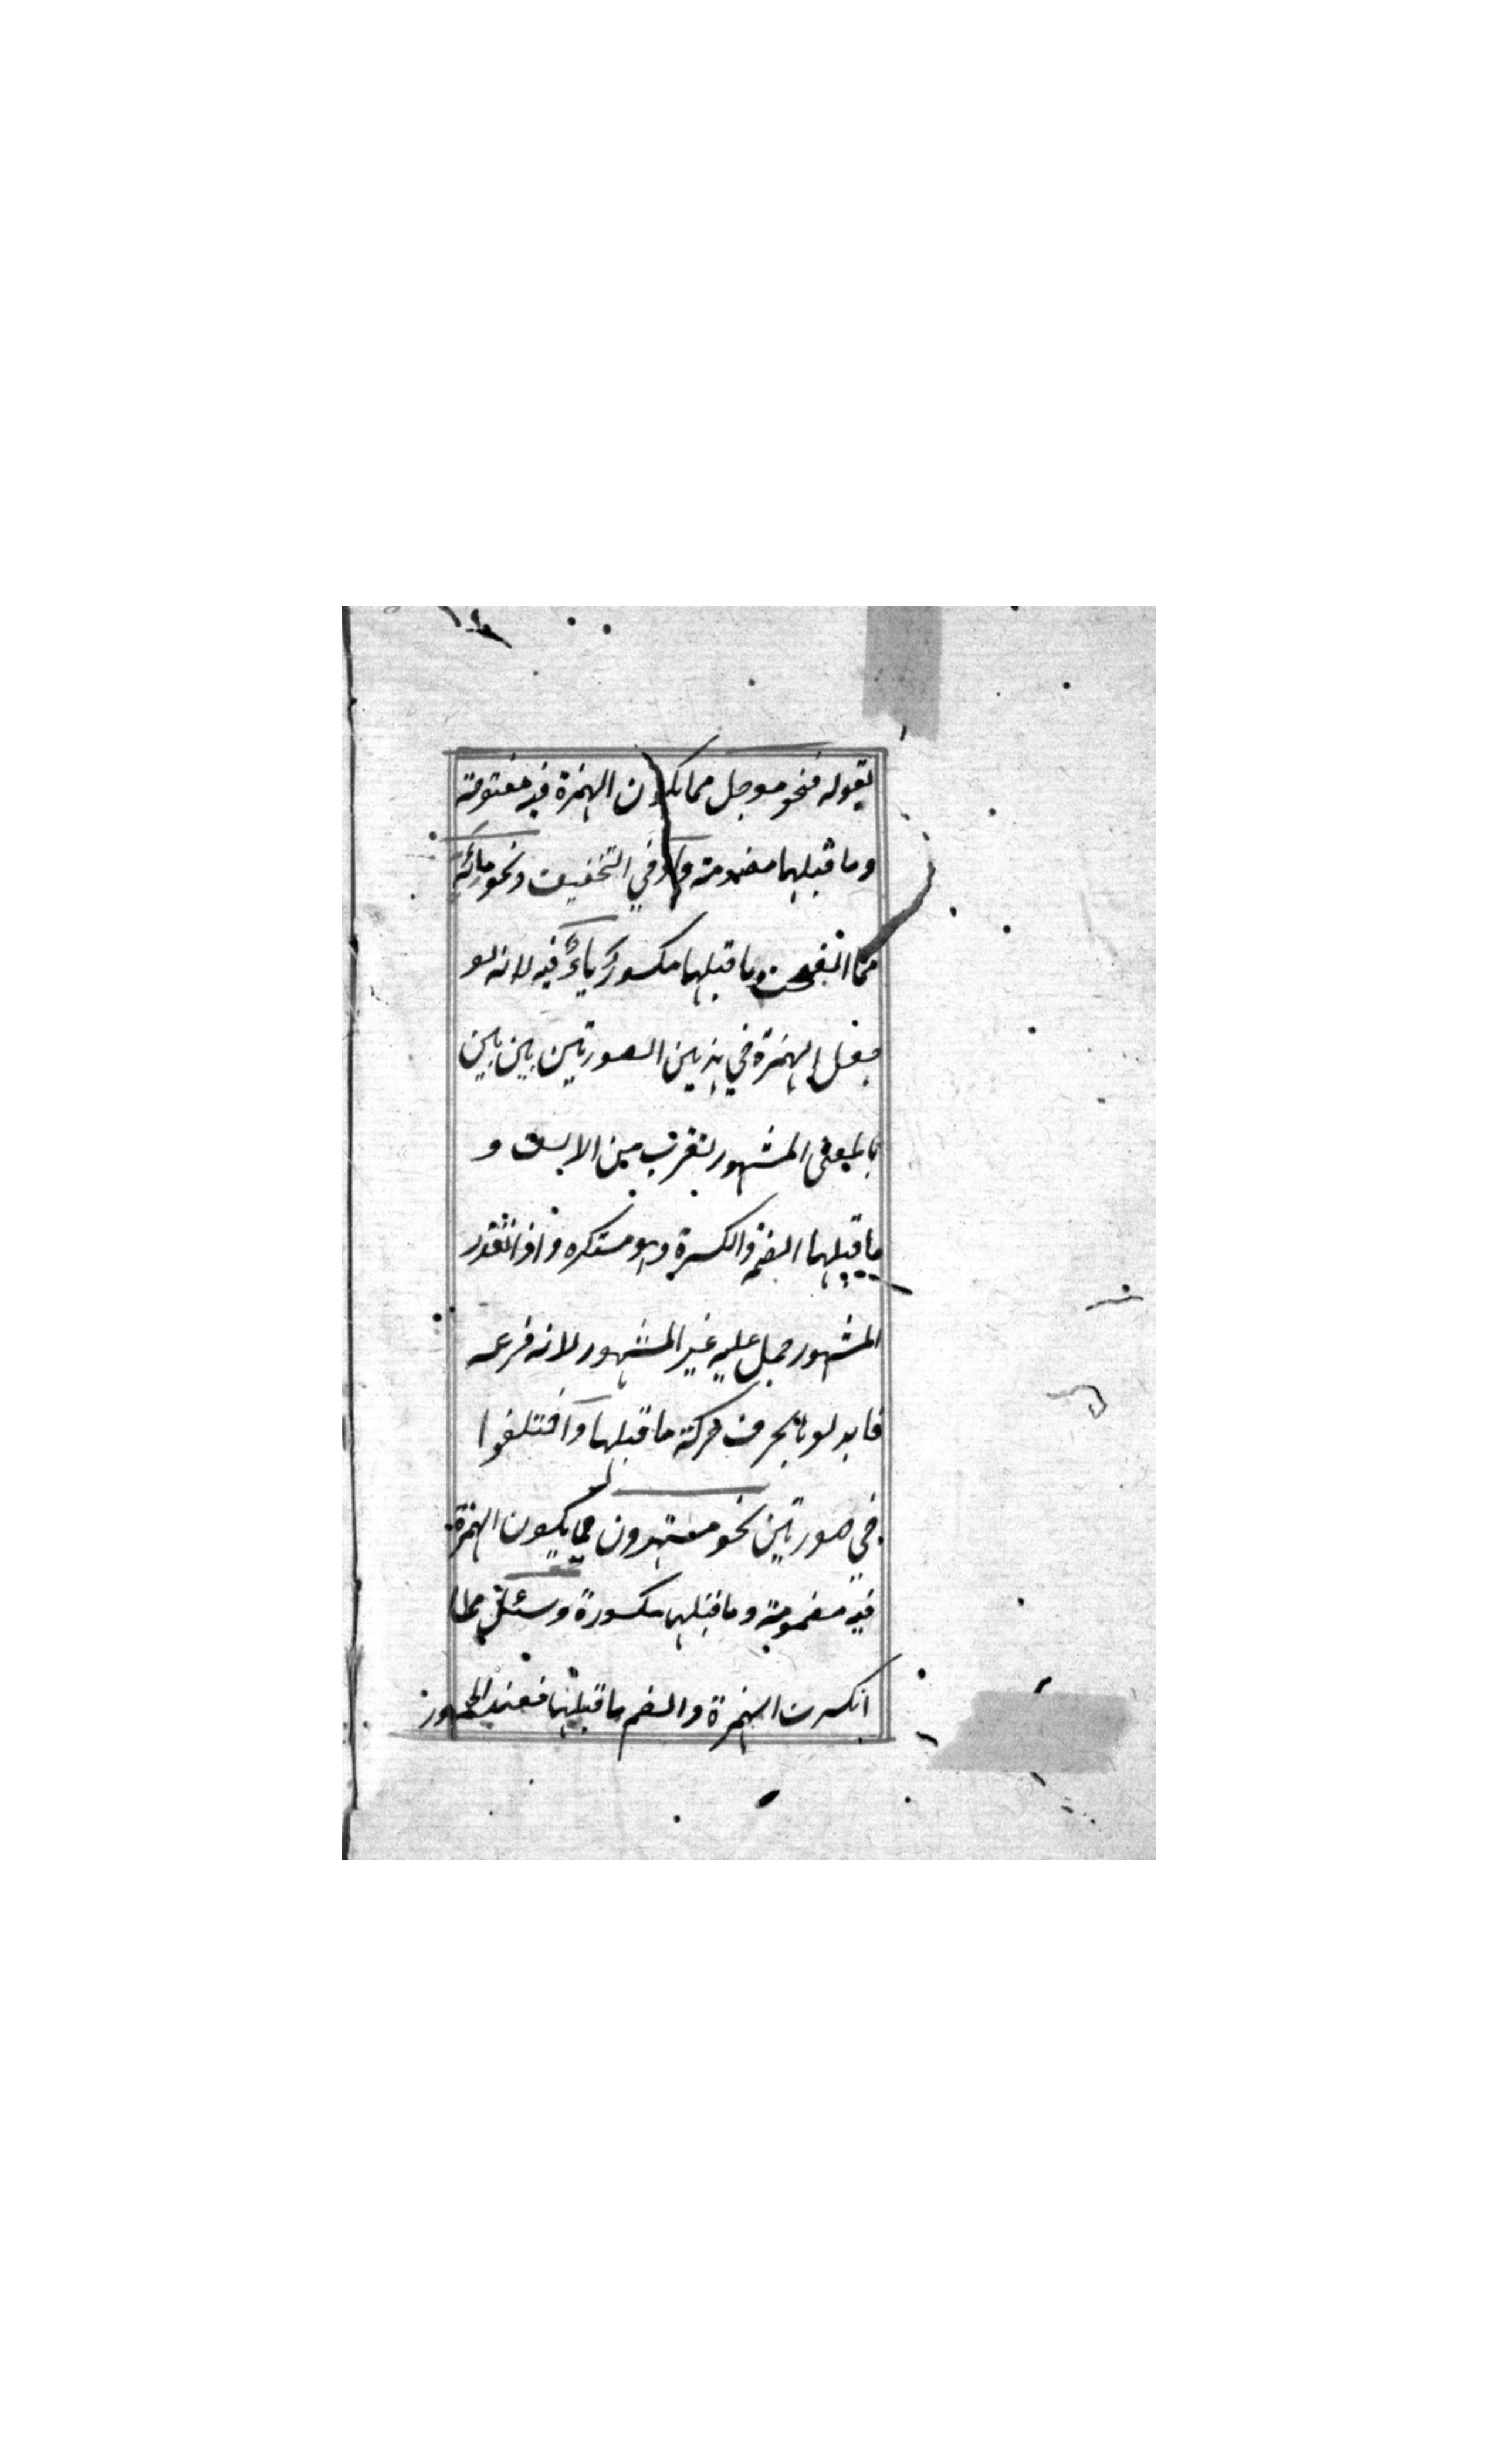 بقوله فنحو موجل مما يكون الهمزة فيه مفتوحة
وما قبلها مضمومة واو في التخفيف ونحو مائة
مما انفتحت وما قبلها مكسور ياء فيه لانه لو
جعل الهمزة في هذين الصورتين بين بين
بالمعنى المشهور لتقرب من الالف و
ما قبلها الضم والكسرة وهو مستكره واذا تعذر
المشهور حمل عليه غير المشهور لانه فرعه
فابدلوها بحرف حركة ما قبلها واختلفوا
في صورتين نحو مستهزون مما يكون الهمزة
فيه مضمومة وما قبلها مكسورة وسئل مما
انكسرت الهمزة وانضم ما قبلها فعند الجمهور